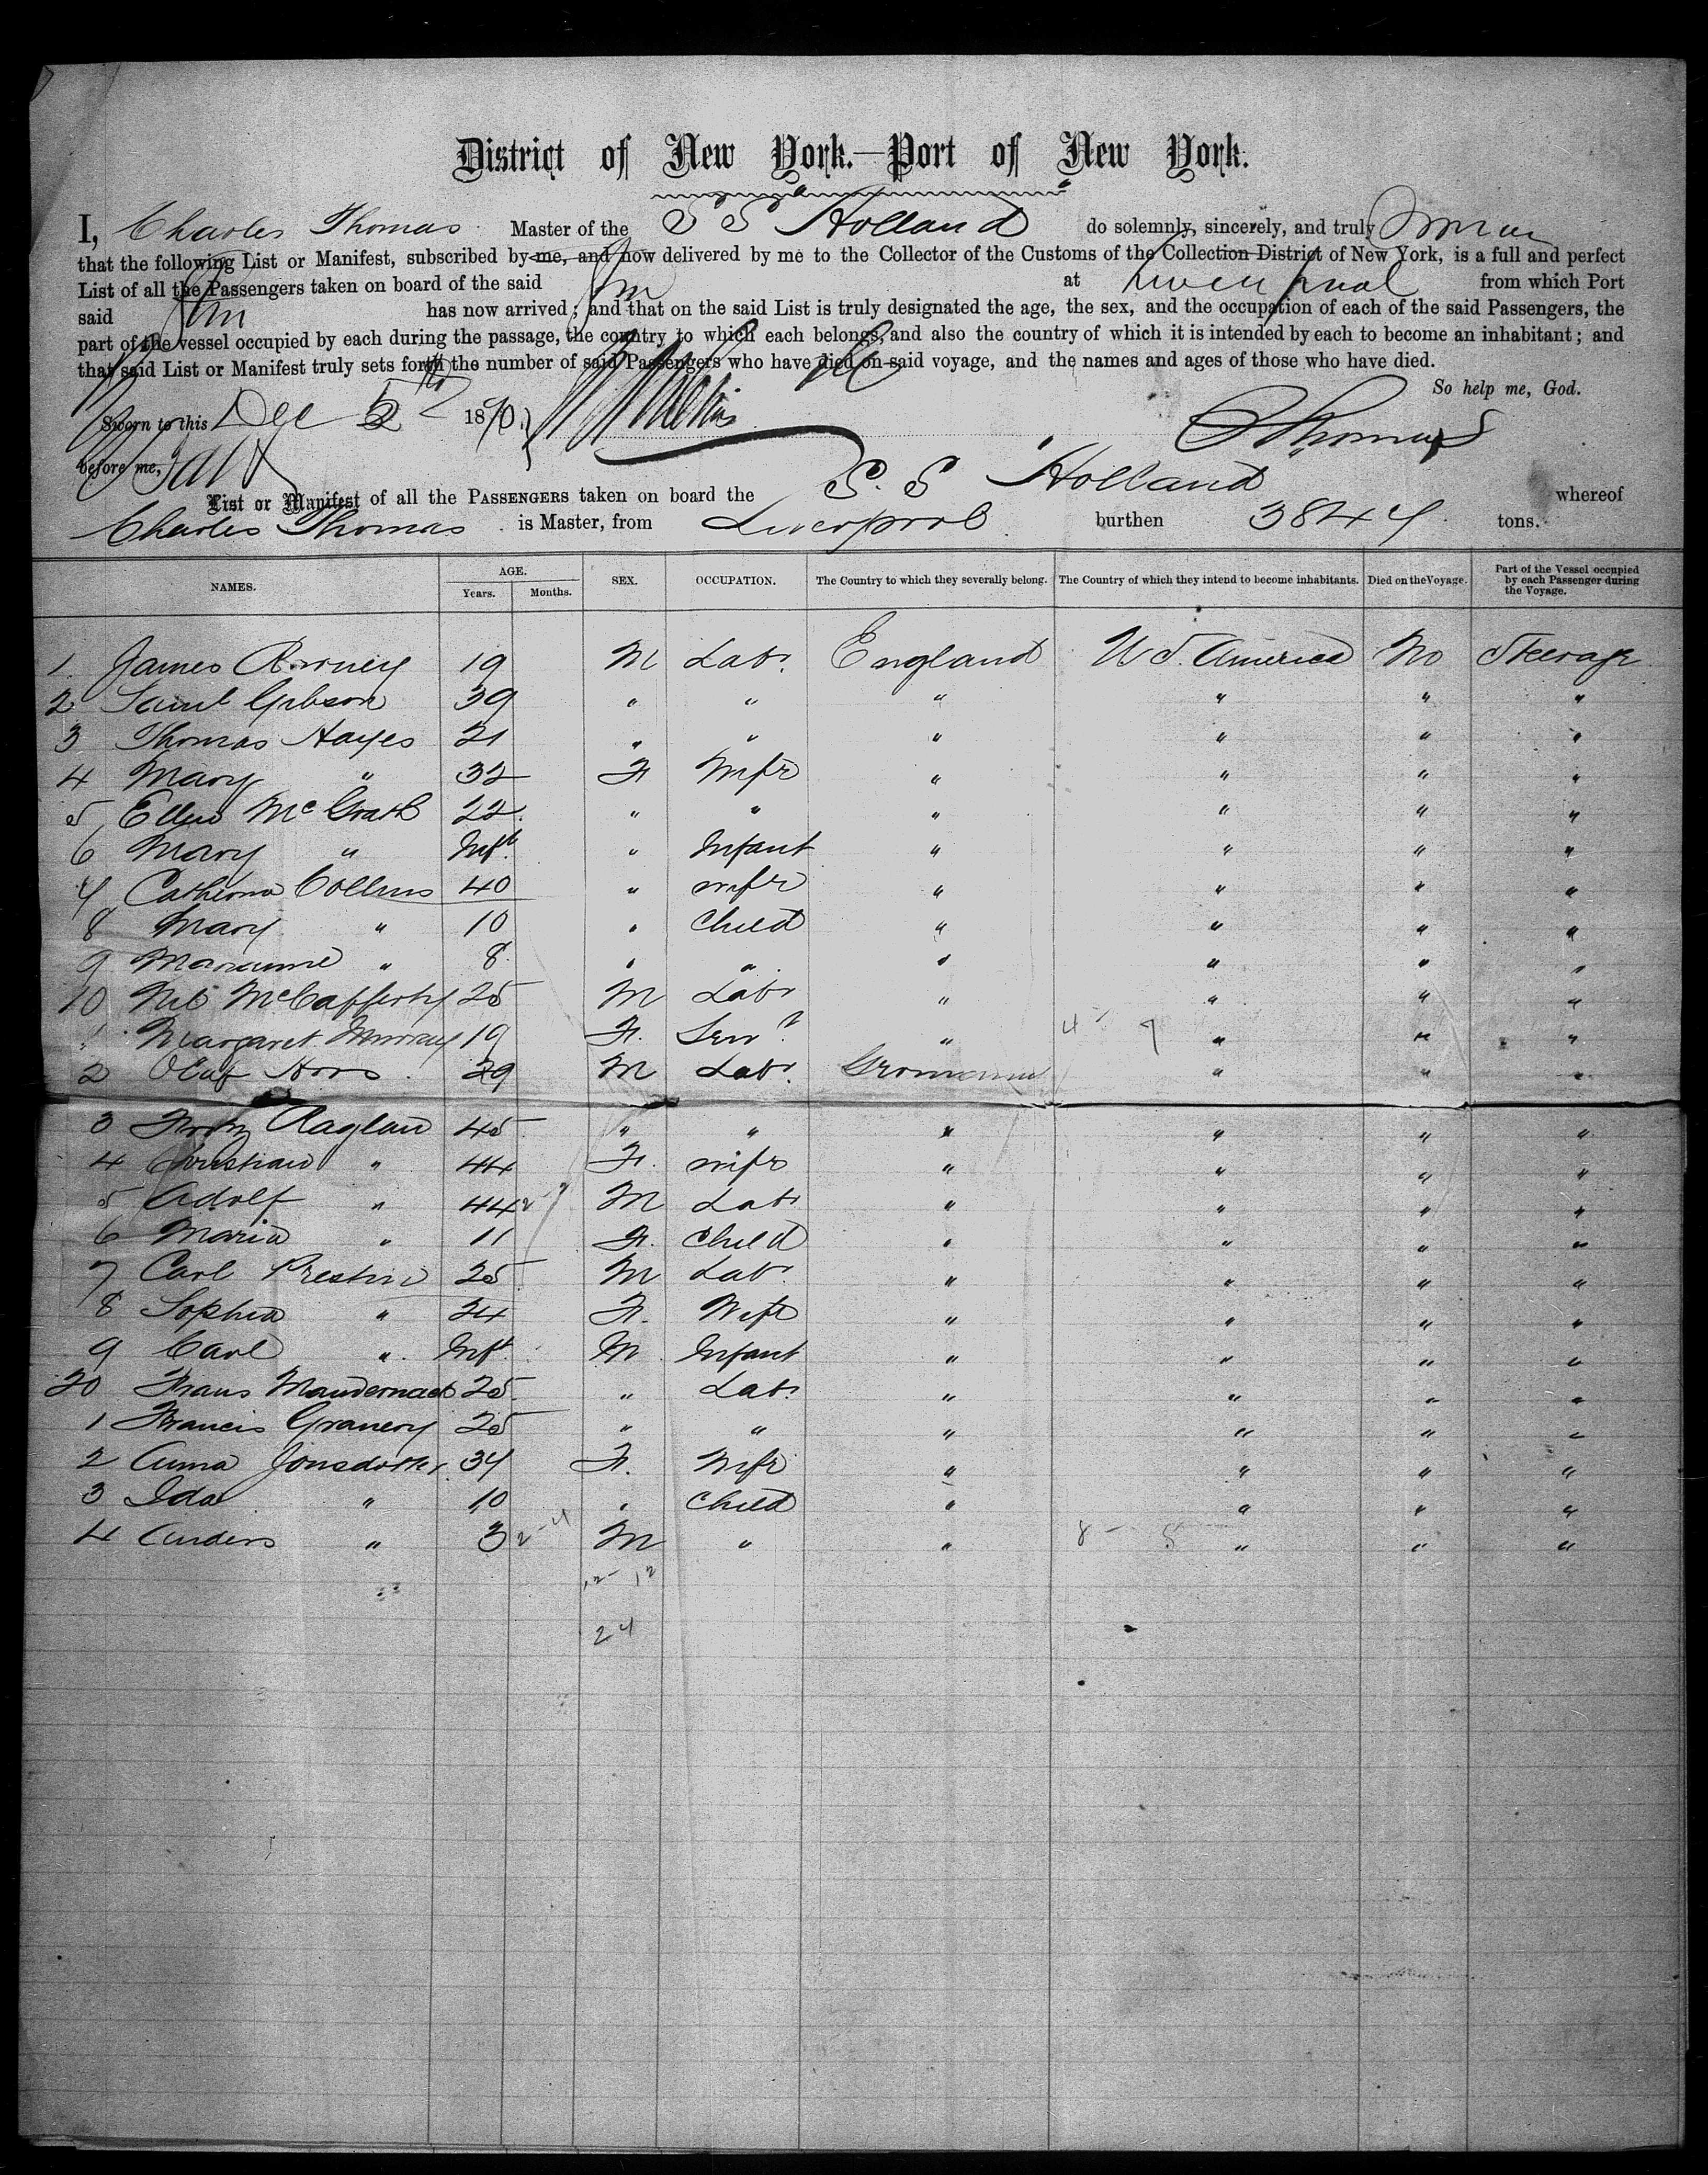 District of New York.—Port of New York.
I, Charles Thomas Master of the S S Holland do solemnly, sincerely, and truly
that the following List or Manifest, subscribed by me, and now delivered by me to the Collector of the Customs of the Collection District of New York, is a full and perfect
List of all the Passengers taken on board of the said at Liverpool from which Port
said has now arrived; and that on the said List is truly designated the age, the sex, and the occupation of each of the said Passengers, the
part of the vessel occupied by each during the passage, the country to which each belongs, and also the country of which it is intended by each to become an inhabitant; and
that said List or Manifest truly sets forth the number of said Passengers who have died on said voyage, and the names and ages of those who have died.
So help me, God.
Sworn to this Dec 5 1870. C Thomas
before me,
List or Manifest of all the PASSENGERS taken on board the S. S Holland whereof
Charles Thomas is Master, from Liverpool burthen 3847 tons.
NAMES. AGE. Years. Months. SEX. OCCUPATION. The Country to which they severally belong. The Country of which they intend to become inhabitants. Died on the Voyage. Part of the Vessel occupied by each Passenger during the Voyage.
1 James 19 M Labr. England U S. America No Steerage
2 Saml Gibson 39 " " " " " "
3 Thomas Hayes 21 " " " " " "
4 Mary " 32 F Wife " " " "
5 Ellen McGrath 22 " " " " " "
6 Mary " Inft. " Infant " " " "
7 Catherine Collins 40 " wife " " " "
8 Mary " 10 " Child " " " "
9 " 8 " " " " " "
10 McCafferty 25 M Labr " " " "
" Margaret Murray 19 F. Servt. " 4 - 7 " " "
2 Olaf 29 M Labr. " " "
3 Raglan 45 " " " " " "
4 Christian " 44 F. wife " " " "
5 Adolf " 44 2 - 7 M Labr " " " "
6 Maria " 11 F. Child " " " "
7 Carl 25 M Labr. " " " "
8 Sophia " 24 F. Wife " " " "
9 Carl " Inft. M Infant " " " "
20 Frans 25 " Labr " " " "
1 Francis Granery 25 " " " " " "
2 Anna Jonsdotter 34 F. Wife " " " "
3 Ida " 10 " Child " " " "
4 Anders " 3 2 - 4 M " " 8 - 5 " " "
12 - 12
24